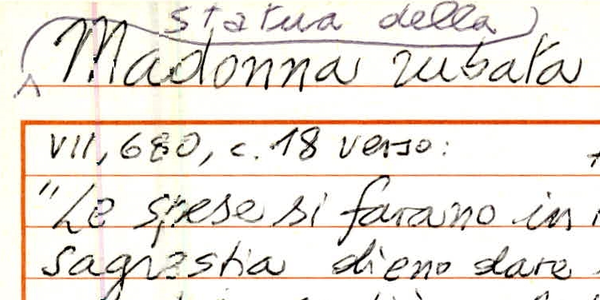 statua della
Madonna rubata
VII, 680, c. 18 verso:
"Le spese si farano in
sagrestia dieno dare